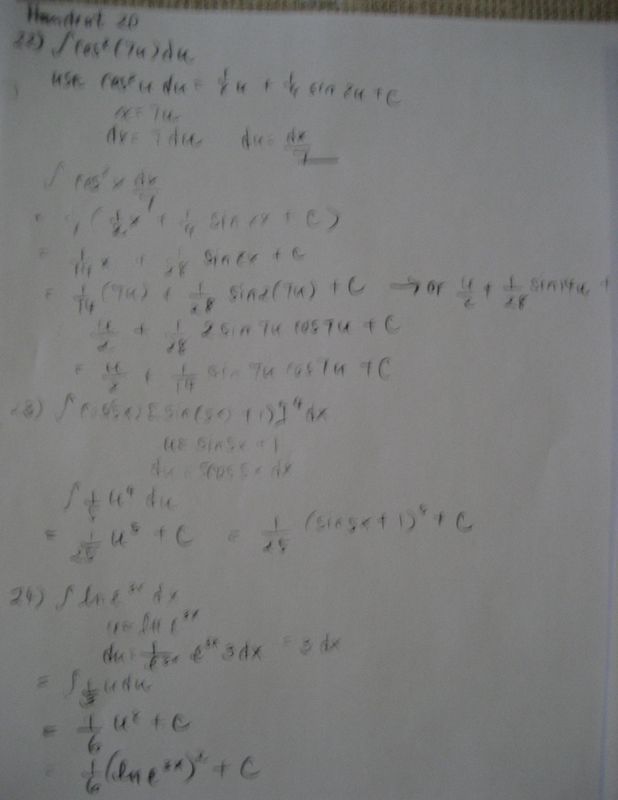 Handout 20
22) ∫ cos²(7u) du
use cos²u du = 1/2 u + 1/4 sin 2u + C
x = 7u
dx = 7 du du = dx/7
∫ cos² x dx/7
= 1/7 (1/2 x + 1/4 sin 2x + C)
= 1/14 x + 1/28 sin 2x + C
= 1/14 (7u) + 1/28 sin 2(7u) + C → or u/2 + 1/28 sin 14u +
u/2 + 1/28 2 sin 7u cos 7u + C
= u/2 + 1/14 sin 7u cos 7u + C
23) ∫ (cos 5x) [sin(5x) + 1)]⁴ dx
u = sin 5x + 1
du = 5 cos 5x dx
∫ 1/5 u⁴ du
= 1/25 u⁵ + C = 1/25 (sin 5x + 1)⁵ + C
24) ∫ ln e³ˣ dx
u = ln e³ˣ
du = 1/e³ˣ e³ˣ 3 dx = 3 dx
= ∫ 1/3 u du
= 1/6 u² + C
= 1/6 (ln e³ˣ)² + C